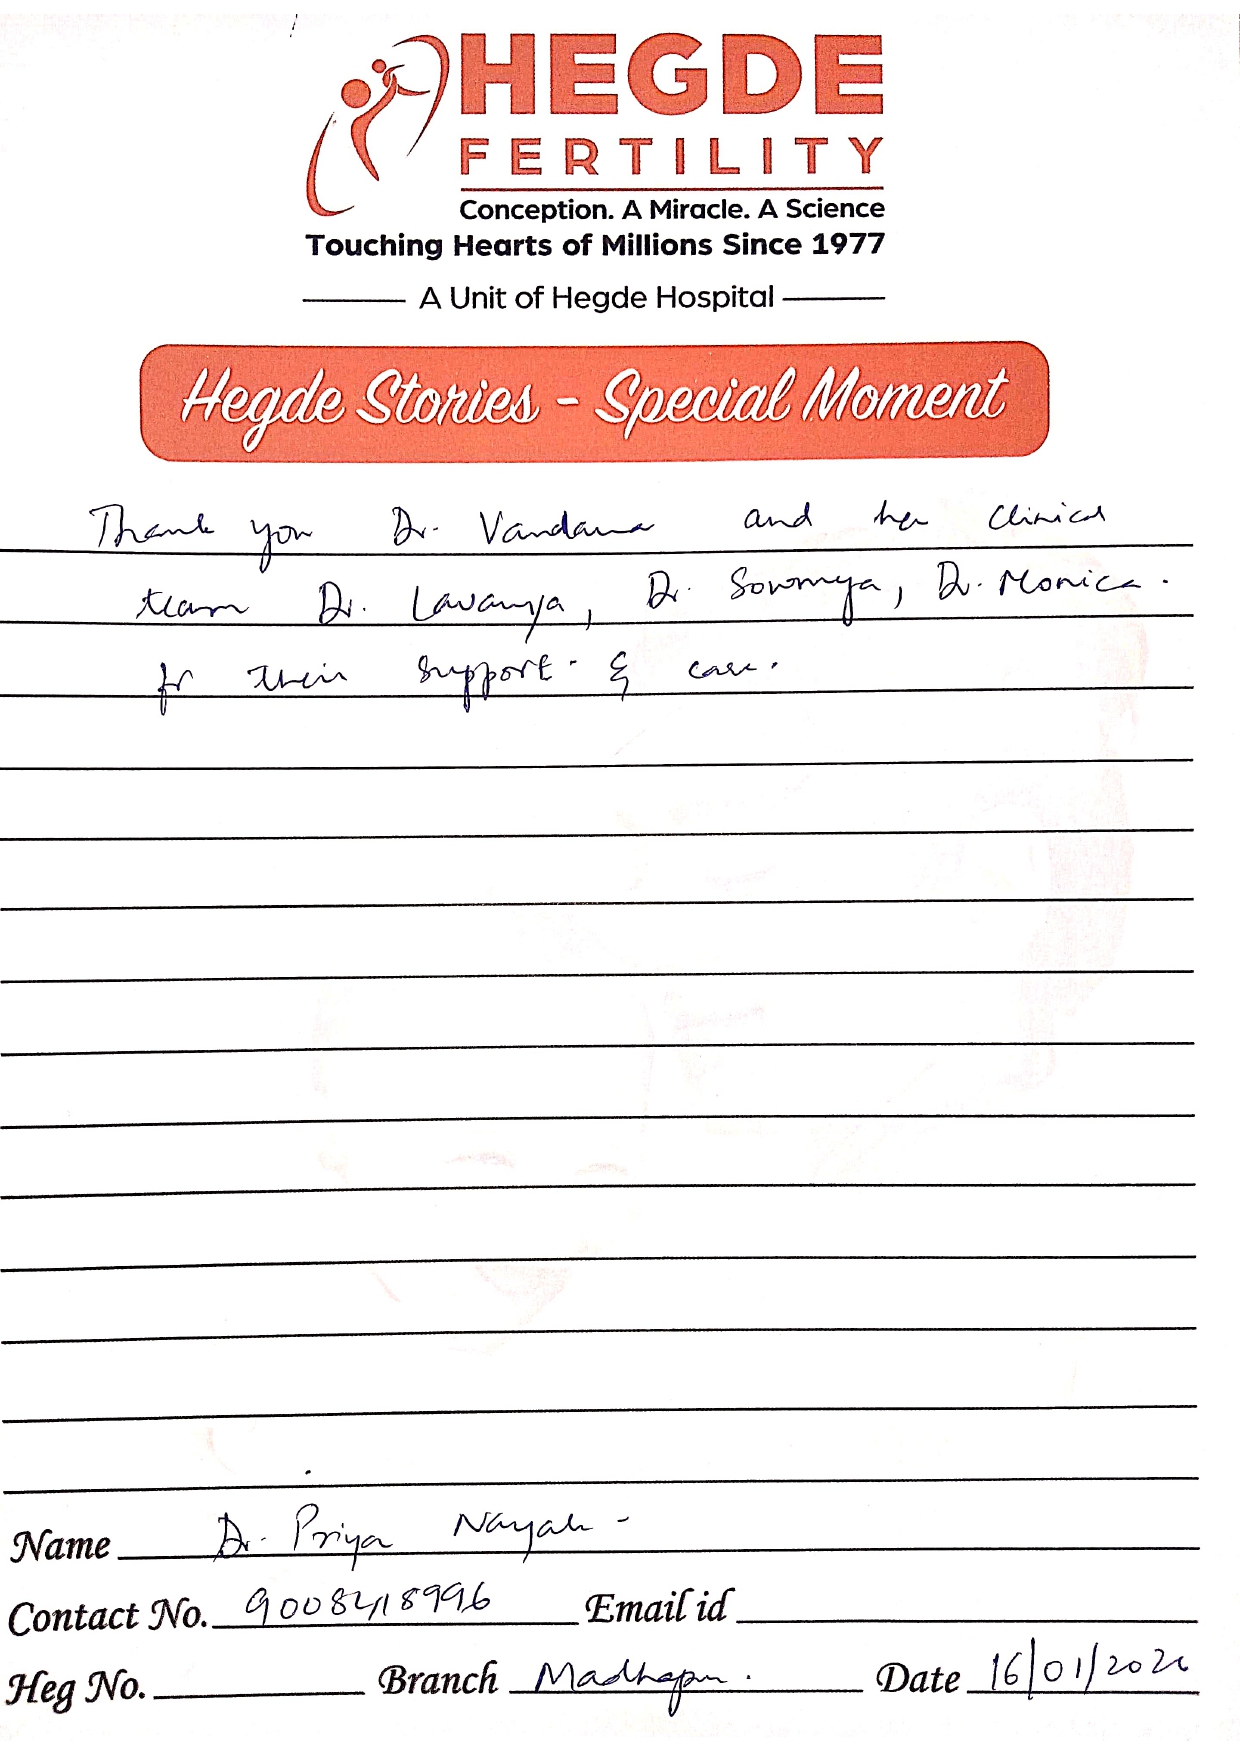 HEGDE
FERTILITY
Conception. A Miracle. A Science
Touching Hearts of Millions Since 1977
A Unit of Hegde Hospital
Hegde Stories - Special Moment
Thank you Dr. Vandana and her clinical
team Dr. Lavanya, Dr. Sowmya, Dr. Monica.
for their support & care.
Name Dr. Priya Nayak
Contact No. 9008418996 Email id
Heg No. Branch Madhapur. Date 16/01/202